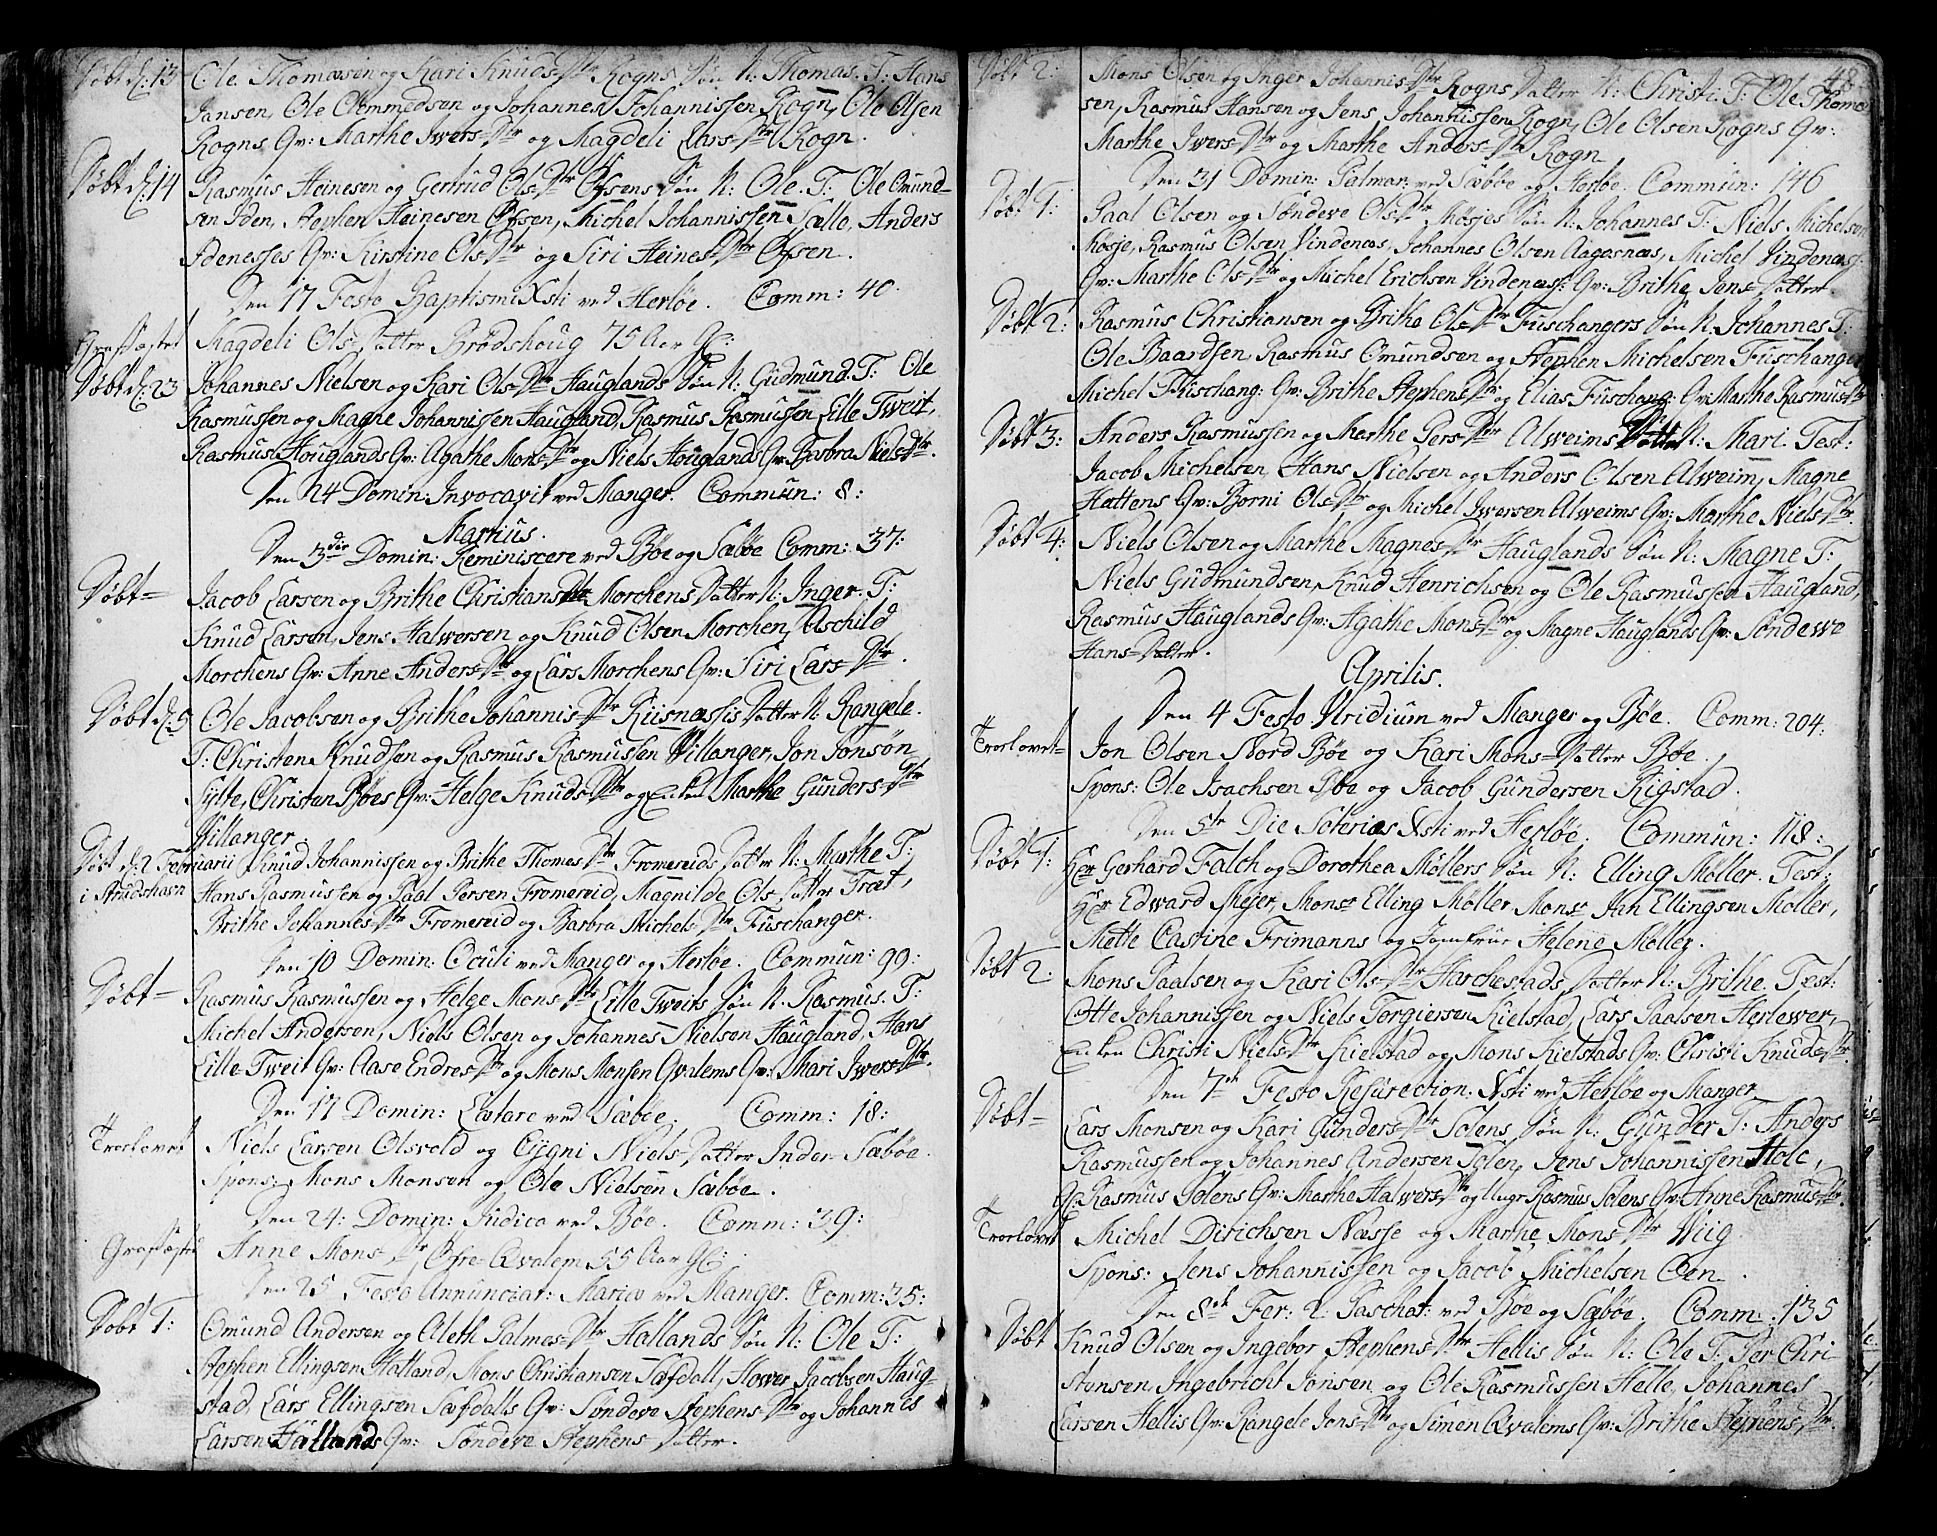 Døbt d: 13 Ole Thomæsen og Kari Knuds-Dtr Rogns Søn N: Thomas. T: Hans
Jansen, Ole Clemmedsen og Johannes Johannissen Rogn, Ole Olsen
Rogns Qv: Marthe Iwers-Dtr og Magdeli Lars-Dtr Rogn.
Døbt d: 14 Rasmus Heinesen og Gertrud Ols-Dtr Øfsens Søn N: Ole. T: Ole Omund-
sen Iden, Stephen Heinesen Øfsen, Michel Johannissen Sælle, Anders
Idenesses Qv: Kirstine Ols-Dtr og Siri Heines-Dtr Øfsen.
Den 17 Festo Baptismi Xsti ved Herløe. Comm: 40.
Grafæstet Magdeli Ols-Datter Brødshoug 75 Aar Gl:
Døbt d: 23 Johannes Nielsen og Kari Ols-Dtr Hauglands Søn N: Gudmund. T: Ole
Rasmussen og Magne Johannissen Haugland, Rasmus Rasmussen Lille Tweit,
Rasmus Houglands Qv: Agathe Mons-Dtr og Niels Houglands Qv: Barbra Niels-Dtr.
Den 24 Domin: Invocavit ved Manger. Commun: 8:
Martius.
Den 3die Domin: Reminiscere ved Bøe og Sæbøe Comm: 37:
Døbt= Jacob Larsen og Brithe Christians-Dtr Morchens Datter N: Inger. T:
Knud Larsen, Jens Halworsen og Knud Olsen Morchen, Aschild
Morchens Qv: Anne Anders-Dtr og Lars Morchens Qv: Siri Lars-Dtr.
Døbt d: 9 Ole Jacobsen og Brithe Johannis-Dtr Riisnæssis Datter N: Rangele.
T: Christen Knudsen og Rasmus Rasmussen Willanger, Jon Jonsøn
Sylte, Christen Bøes Qv: Helge Knuds-Dtr og Enken Marthe Gunders-Dtr
Willanger.
Døbt d: 2 Februarii Knud Johannissen og Brithe Thomes-Dtr Fromereids Datter N: Marthe T:
i Strudshavn Hans Rasmussen og Paal Persen Fromereid, Magnilde Ols-Datter Træt,
Brithe Johannes-Dtr Fromereid og Barbra Michels-Dtr Fuschanger.
Den 10 Domin: Oculi ved Manger og Herløe. Commun: 99:
Døbt= Rasmus Rasmussen og Helge Mons-Dtr Lille Tweits Søn N: Rasmus. T:
Michel Andersen, Niels Olsen og Johannes Nielsen Haugland, Hans
Lille Tweit Qv: Aase Endres-Dtr og Mons Monsen Qvalems Qv: Mari Iwers-Dtr.
Den 17 Domin: Lætare ved Sæbøe. Comm: 18:
Troelovet Niels Larsen Olsvold og Cigni Niels-Datter Inder-Sæbøe.
Spons: Mons Monsen og Ole Nielsen Sæbøe.
Den 24: Domin: Judica ved Bøe. Comm: 39:
Grafæstet Anne Mons-Dr Øfre-Qvalem 55 Aar Gl:
Den 25 Festo Annunciat: Mariæ ved Manger. Comm: 35:
Døbt 1: Omund Andersen og Aleth Palmes-Dtr Hallands Søn N: Ole T:
Stephen Ellingsen Hatland, Mons Christiansen Sæfdall, Hower Jacobsen Haug-
stad, Lars Ellingsen Sæfdalls Qv: Søndeve Stephens-Dtr og Johannes
Larsen Hallands Qv: Søndeve Stephens-Datter.
48
Døbt 2: Mons Olsen og Inger Johannis-Dtr Rogns Datter N: Christi. T: Ole Thome
sen, Rasmus Hansen og Jens Johannissen Rogn, Ole Olsen Rogns Qv:
Marthe Iwers-Dtr og Marthe Anders-Dtr Rogn.
Den 31 Domin: Palmar: ved Sæbøe og Herløe. Commun: 146
Døbt 1: Paal Olsen og Søndeve Ols-Dtr Møsjes Søn N: Johannes T: Niels Michelsen
Møsje, Rasmus Olsen Vindenæs, Johannes Olsen Aagesnæs, Michel Vindenæs:
Qv: Marthe Ols-Dtr og Michel Erichsen Vindenæs: Qv: Brithe Jens-Datter.
Døbt 2: Rasmus Christiansen og Brithe Ols-Dtr Fuschangers Søn N: Johannes T:
Ole Baardsen, Rasmus Omundsen og Stephen Michelsen Fuschanger
Michel Fuschang: Qv: Brithe Stephens-Dtr: og Elias Fuschang: Qv: Marthe Rasmus-Dtr
Døbt 3: Anders Rasmussen og Marthe Pers-Dtr Alweims Datter N: Mari. Test:
Jacob Michelsen, Hans Nielsen og Anders Olsen Alweim, Magne
Hattens Qv: Borni Ols-Dtr og Michel Iwersen Alweims Qv: Marthe Niels-Dtr.
Døbt 4: Niels Olsen og Marthe Magnes-Dtr Hauglands Søn N: Magne T:
Niels Gudmundsen, Knud Henrichsen og Ole Rasmussen Haugland,
Rasmus Hauglands Qv: Agathe Mons-Dtr og Magne Hauglands Qv: Søndewe
Hans-Datter.
Aprilis.
Den 4 Festo Viridium ved Manger og Bøe. Comm: 204:
Troelovet= Jon Olsen Nord Bøe og Kari Mons-Datter Bøe.
Spons: Ole Isachsen Bøe og Jacob Gundersen Rigstad.
Den 5te Die Soterias Xsti ved Herløe. Commun: 118:
Døbt 1: Hr Gerhard Falch og Dorothea Møllers Søn N: Elling Møller. Test:
Hr Edward Mejer, Monsr Elling Møller, Monsr Jan Ellingsen Møller,
Mette Castine Frimanns og Jomfrue Helene Møller.
Døbt 2: Mons Paalsen og Kari Ols-Dtr Harchestads Datter N: Brithe. Test:
Otte Johannissen og Niels Torgiersen Kielstad, Lars Paalsen Herlewer,
Enken Christi Niels-Dtr Kielstad og Mons Kielstads Qv: Christi Knuds-Dtr.
Den 7de Festo Resurection: Xsti ved Herløe og Manger.
Døbt= Lars Monsen og Kari Gunders-Dtr Solens Søn N: Gunder T: Anders
Rasmussen og Johannes Andersen Solen, Jens Johannissen Hole,
Gl: Rasmus Solens Qv: Marthe Halwers-Dtr og Ungr Rasmus Solens Qv: Anne Rasmus-Dtr.
Troelovet Michel Dirichsen Næsse og Marthe Mons-Dtr Wiig
Spons: Jens Johannissen og Jacob Michelsen Øen.
Den 8de Fer: 2 Paschat: ved Bøe og Sæbøe. Comm: 135
Døbt Knud Olsen og Ingebor Stephens-Dtr Hellis Søn N: Ole T: Per Chri
stensen, Ingebricht Jonsen og Ole Rasmussen Helle, Johannes
Larsen Hellis Qv: Rangele Jens-Dtr og Simen Qvalems Qv: Brithe Stephens-Dtr.